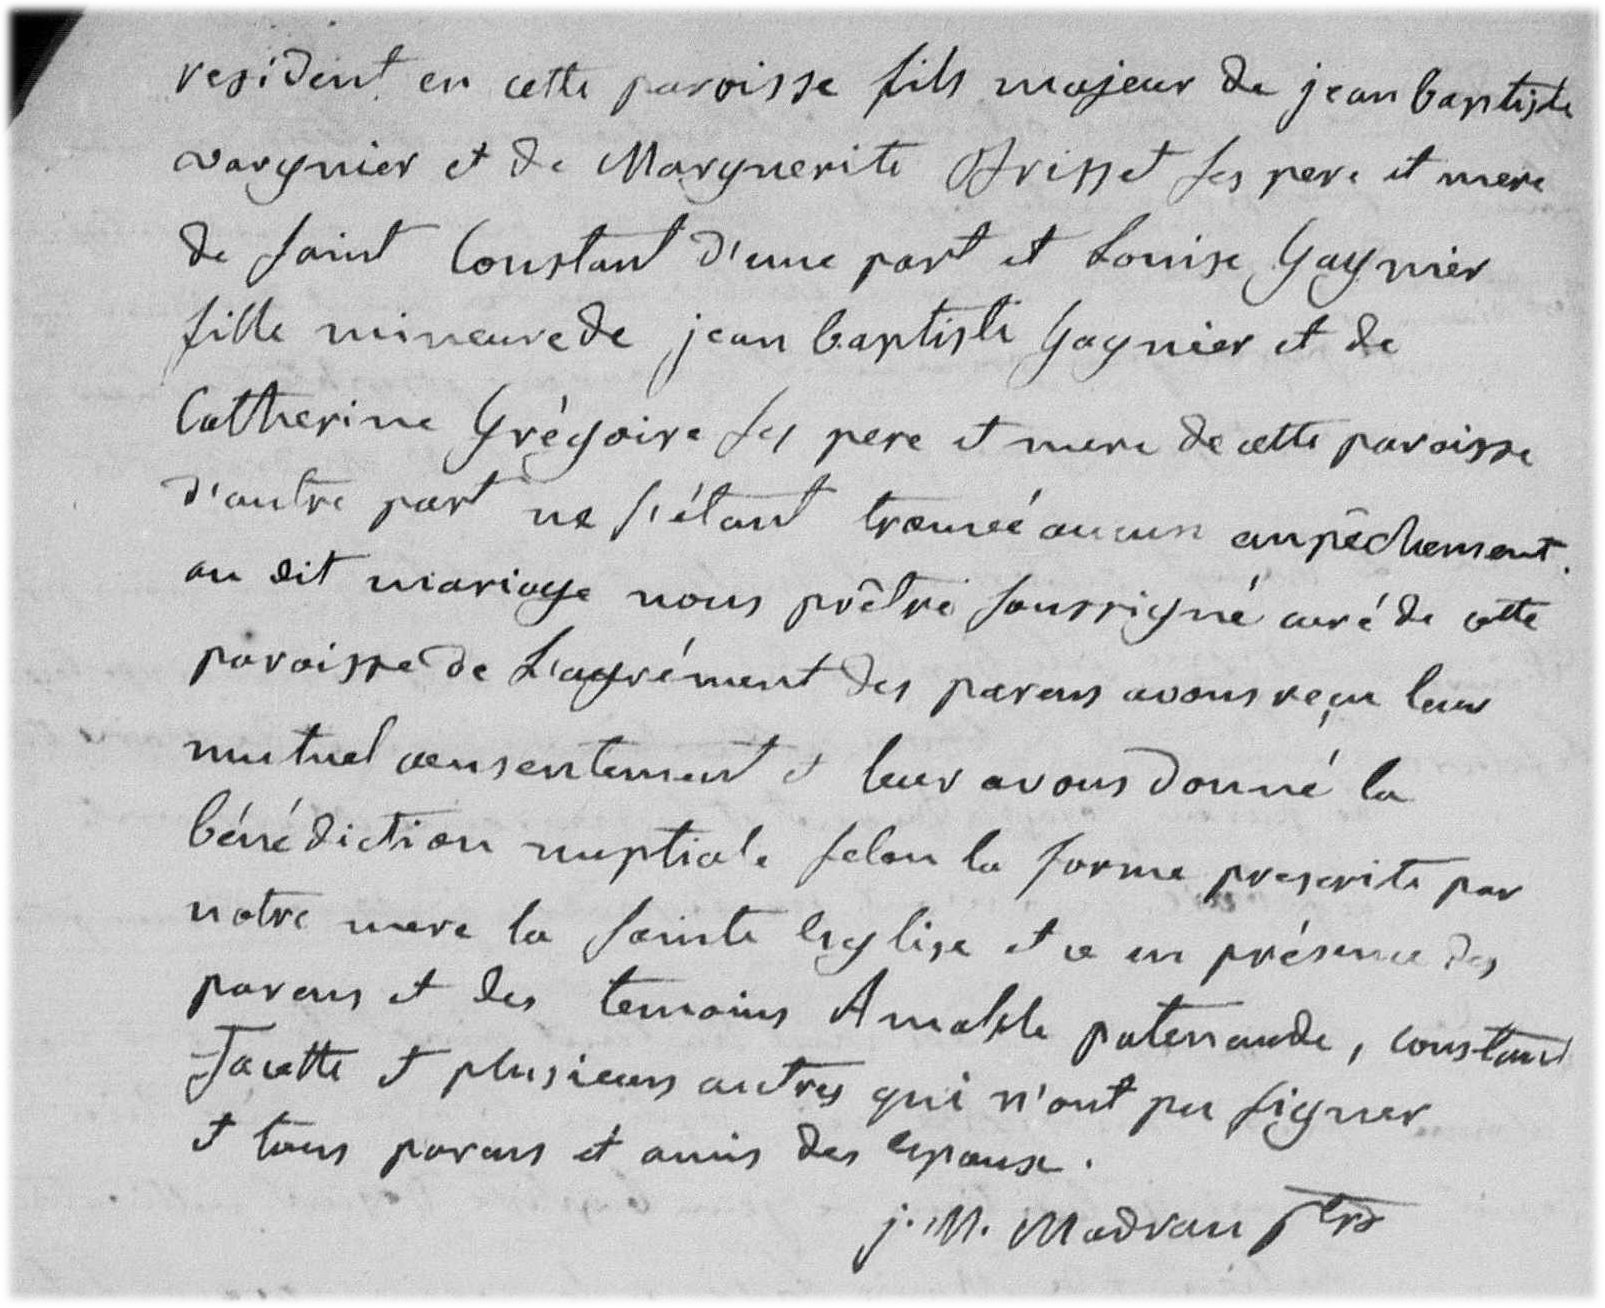 resident en cette paroisse fils majeur de jean baptiste
vargnier et de Marguerite Brisset ses pere et mere
de saint Constant d'une part et Louise Gagnier
fille mineure de jean baptiste Gagnier et de
Catherine Grégoire ses pere et mere de cette paroisse
d'autre part ne s'étant trouveé aucun enpêchement.
au dit mariage nous prêtre soussigné curé de cette
paroisse de L'agrément des parens avons reçu leur
mutuel consentement et leur avons donné la
bénédiction nuptiale selon la forme prescrite par
notre mere la sainte esglise et ce en présence des
parens et des temoins Amable patenaude, constant
et plusieurs autres qui n'ont pu signer
et tous parens et amis des espoux.
j. M. Madran ptre